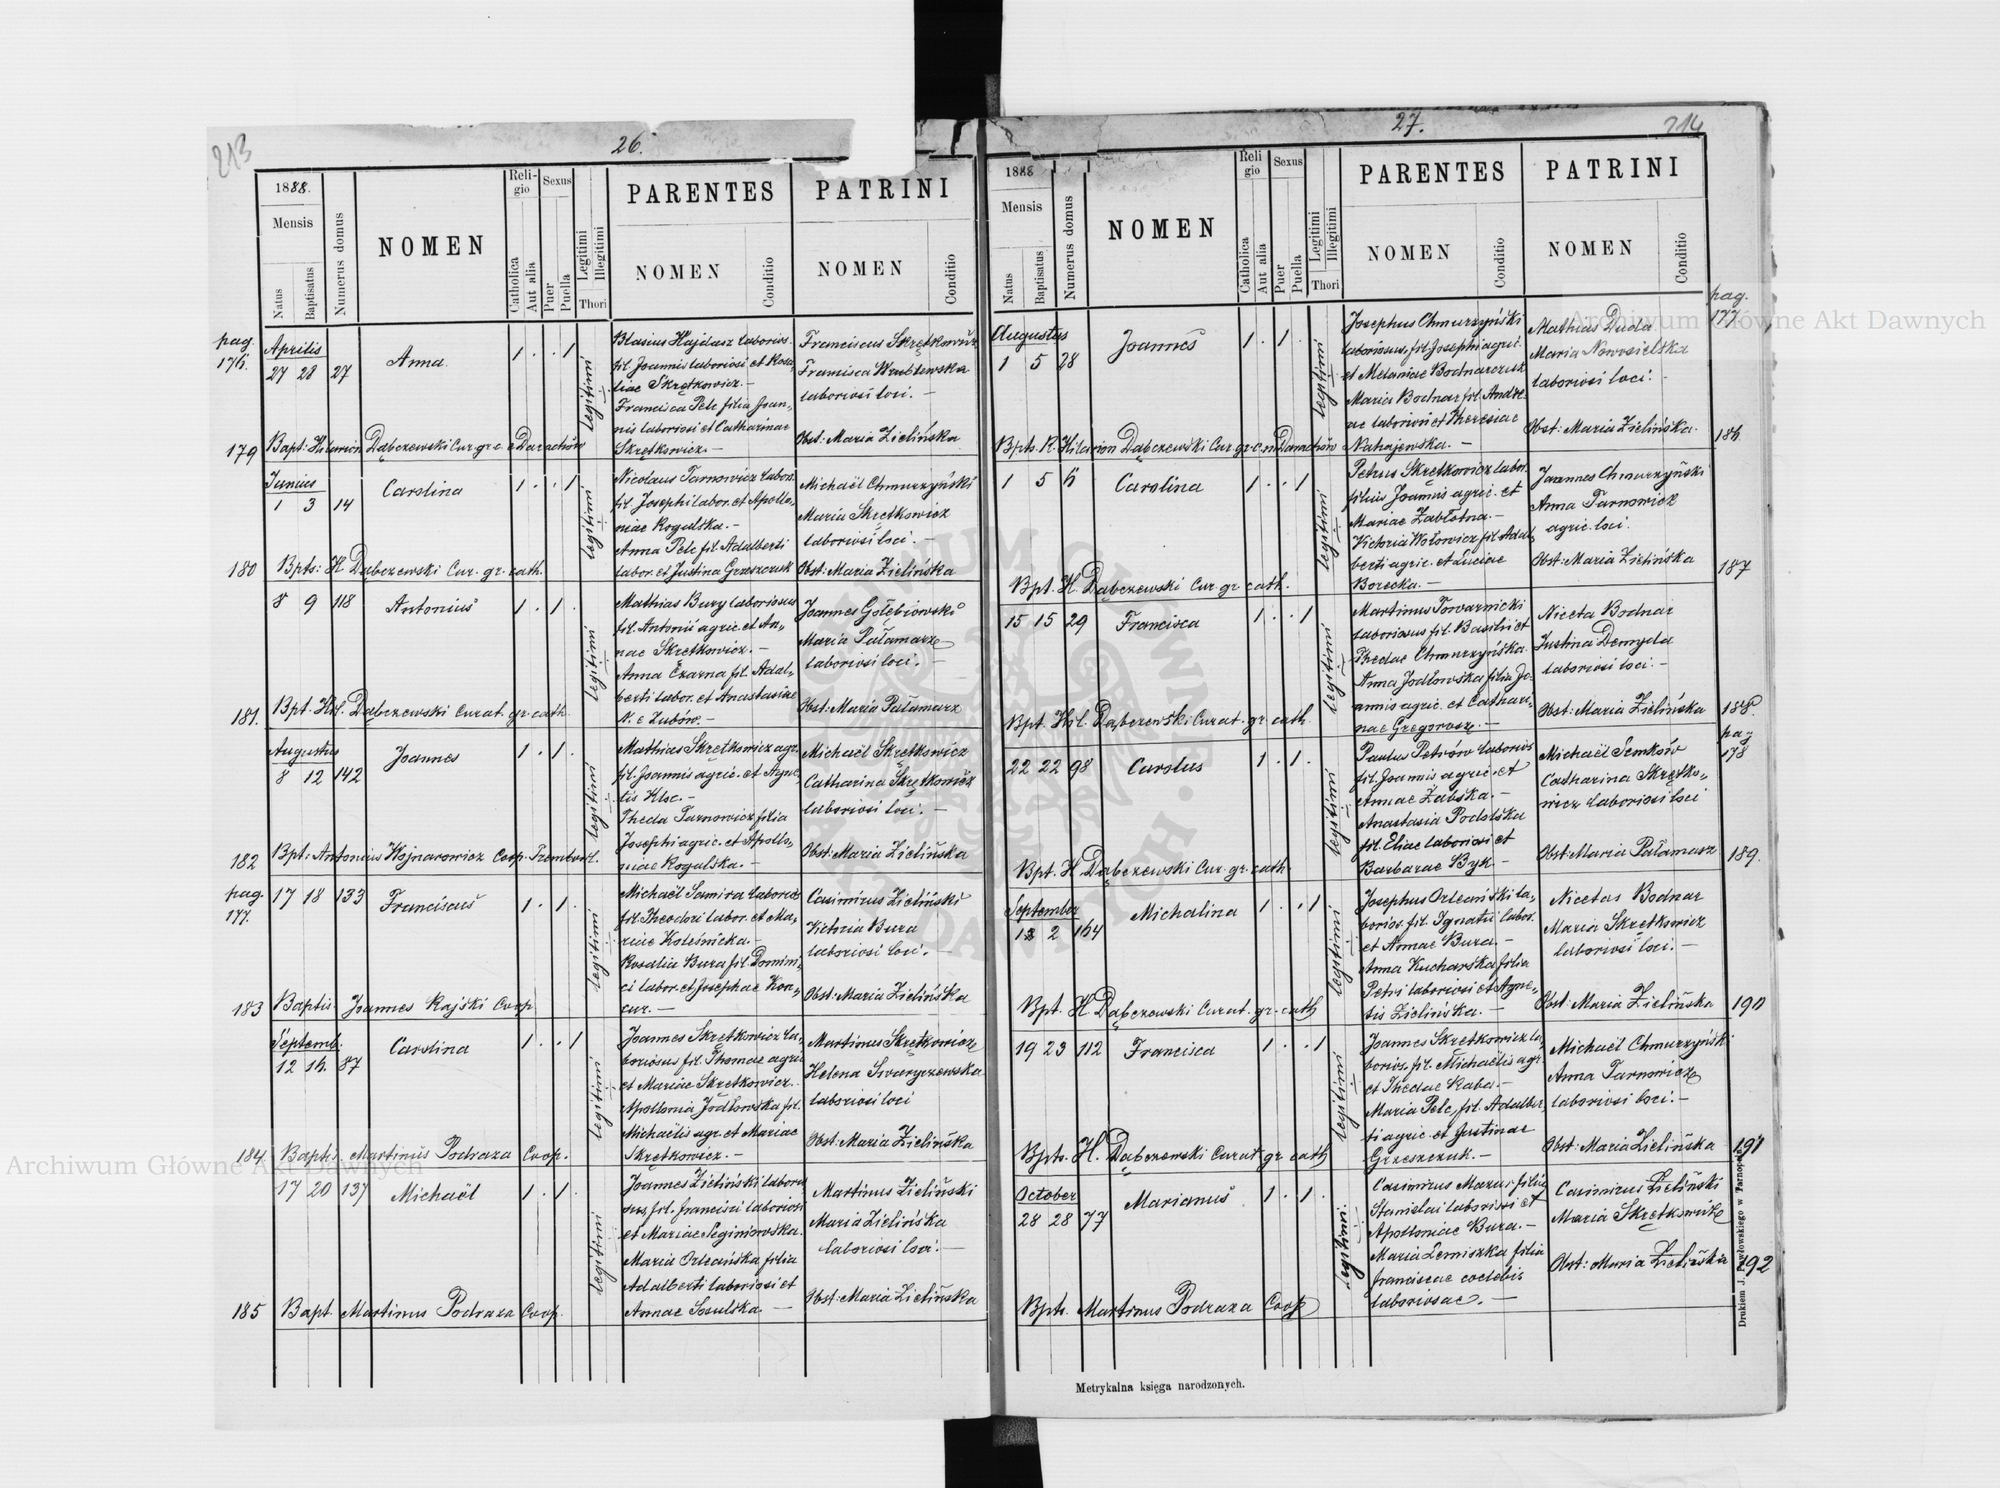 213
26.
1888.
Mensis
Natus
Baptisatus
Numerus domus
NOMEN
Religio
Catholica
Aut alia
Sexus
Puer
Puella
Legitimi
Illegitimi
Thori
PARENTES
NOMEN
Conditio
PATRINI
NOMEN
Conditio
pag.
176.
Aprilis
27 28 27
Anna.
1 . . 1
legitimi
Blasius Hajdasz laborios.
fil. Joannis laboriosi et Rosa„
liae Skrętkowicz. —
Francisca Pelc filia Joan„
nis laboriosi et Catharinae
Skrętkowicz. —
Franciscus Skrętkowicz
Francisca Wróblewska
laboriosi loci. —
Obst: Maria Zielińska
179 Bapt: Hilarion Dąbczewski Cur. gr. c. e Darachów
Junius
1 3 14
Carolina
1 . . 1
legitimi
Nicolaus Tarnowicz labor.
fil. Josephi labor. et Apollo„
niae Rogulska. —
Anna Pelc fil. Adalberti
labor. et Justina Grzeszczuk
Michaël Chmurzyński
Maria Skrętkowicz
laboriosi loci. —
Obst: Maria Zielińska
180 Bpts: H. Dąbczewski Cur. gr. cath.
8 9 118
Antonius
1 . 1 .
legitimi
Mathias Bury laboriosus
fil. Antonii agric. et An„
nae Skrętkowicz. —
Anna Czarna fil. Adal„
berti labor. et Anastasiae
N. e Zubów. —
Joannes Gołębiowski
Maria Pałamarz
laboriosi loci. —
Obst: Maria Pałamarz
181. Bpt. Hil. Dąbczewski Curat. gr. cath.
Augustus
8 12 142
Joannes
1 . 1 .
legitimi
Mathias Skrętkowicz agr.
fil. Joannis agric. et Agne„
tis Kloc. —
Theda Tarnowicz filia
Josephi agric. et Apollo„
niae Rogulska. —
Michaël Skrętkowicz
Catharina Skrętkowicz
laboriosi loci. —
Obst: Maria Zielińska
182 Bpt: Antonius Wojnarowicz Coop. Trembowl.
pag.
177.
17 18 133
Franciscus
1 . 1 .
legitimi
Michaël Samira laborios
fil. Theodori labor. et Ma„
riae Koleśnicka. —
Rosalia Bura fil. Domini„
ci labor. et Josephae Kon„
cur. —
Casimirus Zieliński
Victoria Bura
laboriosi loci. —
Obst: Maria Zielińska
183 Baptis. Joannes Rajski Coop
Septemb.
12 16. 87
Carolina
1 . . 1
legitimi
Joannes Skrętkowicz la„
boriosus fil. Thomae agric
et Mariae Skrętkowicz.
Apollonia Jodłowska fil.
Michaëlis agr. et Mariae
Skrętkowicz. —
Martinus Skrętkowicz
Helena Swaryczewska
laboriosi loci
Obst: Maria Zielińska
184 Bapts. Martinus Podraza Coop.
17 20 137
Michaël
1 . 1 .
legitimi
Joannes Zieliński laborio
sus, fil. Francisci laboriosi
et Mariae
Maria Orleańska filia
Adalberti laboriosi et
Annae Sosulska. —
Martinus Zieliński
Maria Zielińska
laboriosi loci. —
Obst: Maria Zielińska
185 Bapt. Martinus Podraza Coop.
27.
214
1888
Mensis
Natus
Baptisatus
Numerus domus
NOMEN
Religio
Catholica
Aut alia
Sexus
Puer
Puella
Legitimi
Illegitimi
Thori
PARENTES
NOMEN
Conditio
PATRINI
NOMEN
Conditio
pag.
177
Augustus
1 5 28
Joannes
1 . 1 .
legitimi
Josephus Chmurzyński
laboriosus, fil. Josephi agric.
et Melaniae Bodnarczuk
Maria Bodnar fil. Andre„
ae laboriosi et Theresiae
Nahajewska. —
Mathias Duda
Maria Nowosielska
laboriosi loci. —
Obst: Maria Zielińska.
186.
Bpts. R. Hilarion Dąbczewski Cur. gr. c. in Darachów
1 5 6
Carolina
1 . . 1
legitimi
Petrus Skrętkowicz labor.
filius Joannis agric. et
Mariae Zabłotna. —
Victoria Wołowicz fil. Adal„
berti agric. et Luciae
Borecka. —
Joannes Chmurzyński
Anna Tarnowicz
agric. loci.
Obst: Maria Zielińska
187
Bpt. H. Dąbczewski Cur. gr. cath.
15 15 29
Francisca
1 . . 1
legitimi
Martinus Towarnicki
laboriosus fil. Basilii et
Thedae Chmurzyńska.
Anna Jodłowska filia Jo„
annis agric. et Cathari„
nae Gregorasz. —
Niceta Bodnar
Justina Demyda
laboriosi loci. —
Obst: Maria Zielińska
188.
Bpt. Hil. Dąbczewski Curat. gr. cath.
pag
178
22 22 98
Carolus
1 . 1 .
legitimi
Paulus Petrów laborios
fil. Joannis agric. et
Annae Zabska. —
Anastasia Podolska
fil. Eliae laboriosi et
Barbarae Byk —
Michaël Semków
Catharina Skrętko„
wicz laboriosi loci
Obst: Maria Pałamarz
189.
Bpt. H. Dąbczewski Cur. gr. cath.
September
2 164
Michalina
1 . . 1
legitimi
Josephus Orleański la„
borios. fil. Ignatii labor.
et Annae Bura. —
Anna Kucharska filia
Petri laboriosi et Agne„
tis Zielińska. —
Nicetas Bodnar
Maria Skrętkowicz
laboriosi loci. —
Obst: Maria Zielińska
190
Bpt. H. Dąbczewski Curat. gr. cath
19 23 112
Francisca
1 . . 1
legitimi
Joannes Skrętkowicz la„
borios. fil. Michaëlis agr.
et Thedae Kaba. —
Maria Pelc, fil. Adalber„
ti agric. et Justinae
Grzeszczuk. —
Michaël Chmurzyński
Anna Tarnowicz
laboriosi loci. —
Obst: Maria Zielińska
191
Bpts. H. Dąbczewski Curat. gr. cath
October
28 28 77
Marianus
1 . 1 .
legitimi.
Casimirus Mazur filius
Stanislai laboriosi et
Apolloniae Bura. —
Maria Lemiszka filia
Franciscae coelebis
laboriosae. —
Casimirus Zieliński
Maria Skrętkowicz
Obst: Maria Zielińska
192
Bpts. Martinus Podraza Coop
Metrykalna księga narodzonych.
Drukiem J. Pawłowskiego w Tarnopolu
Archiwum Główne Akt Dawnych
Archiwum Główne Akt Dawnych
ARCHIWUM GŁÓWNE AKT DAWNYCH